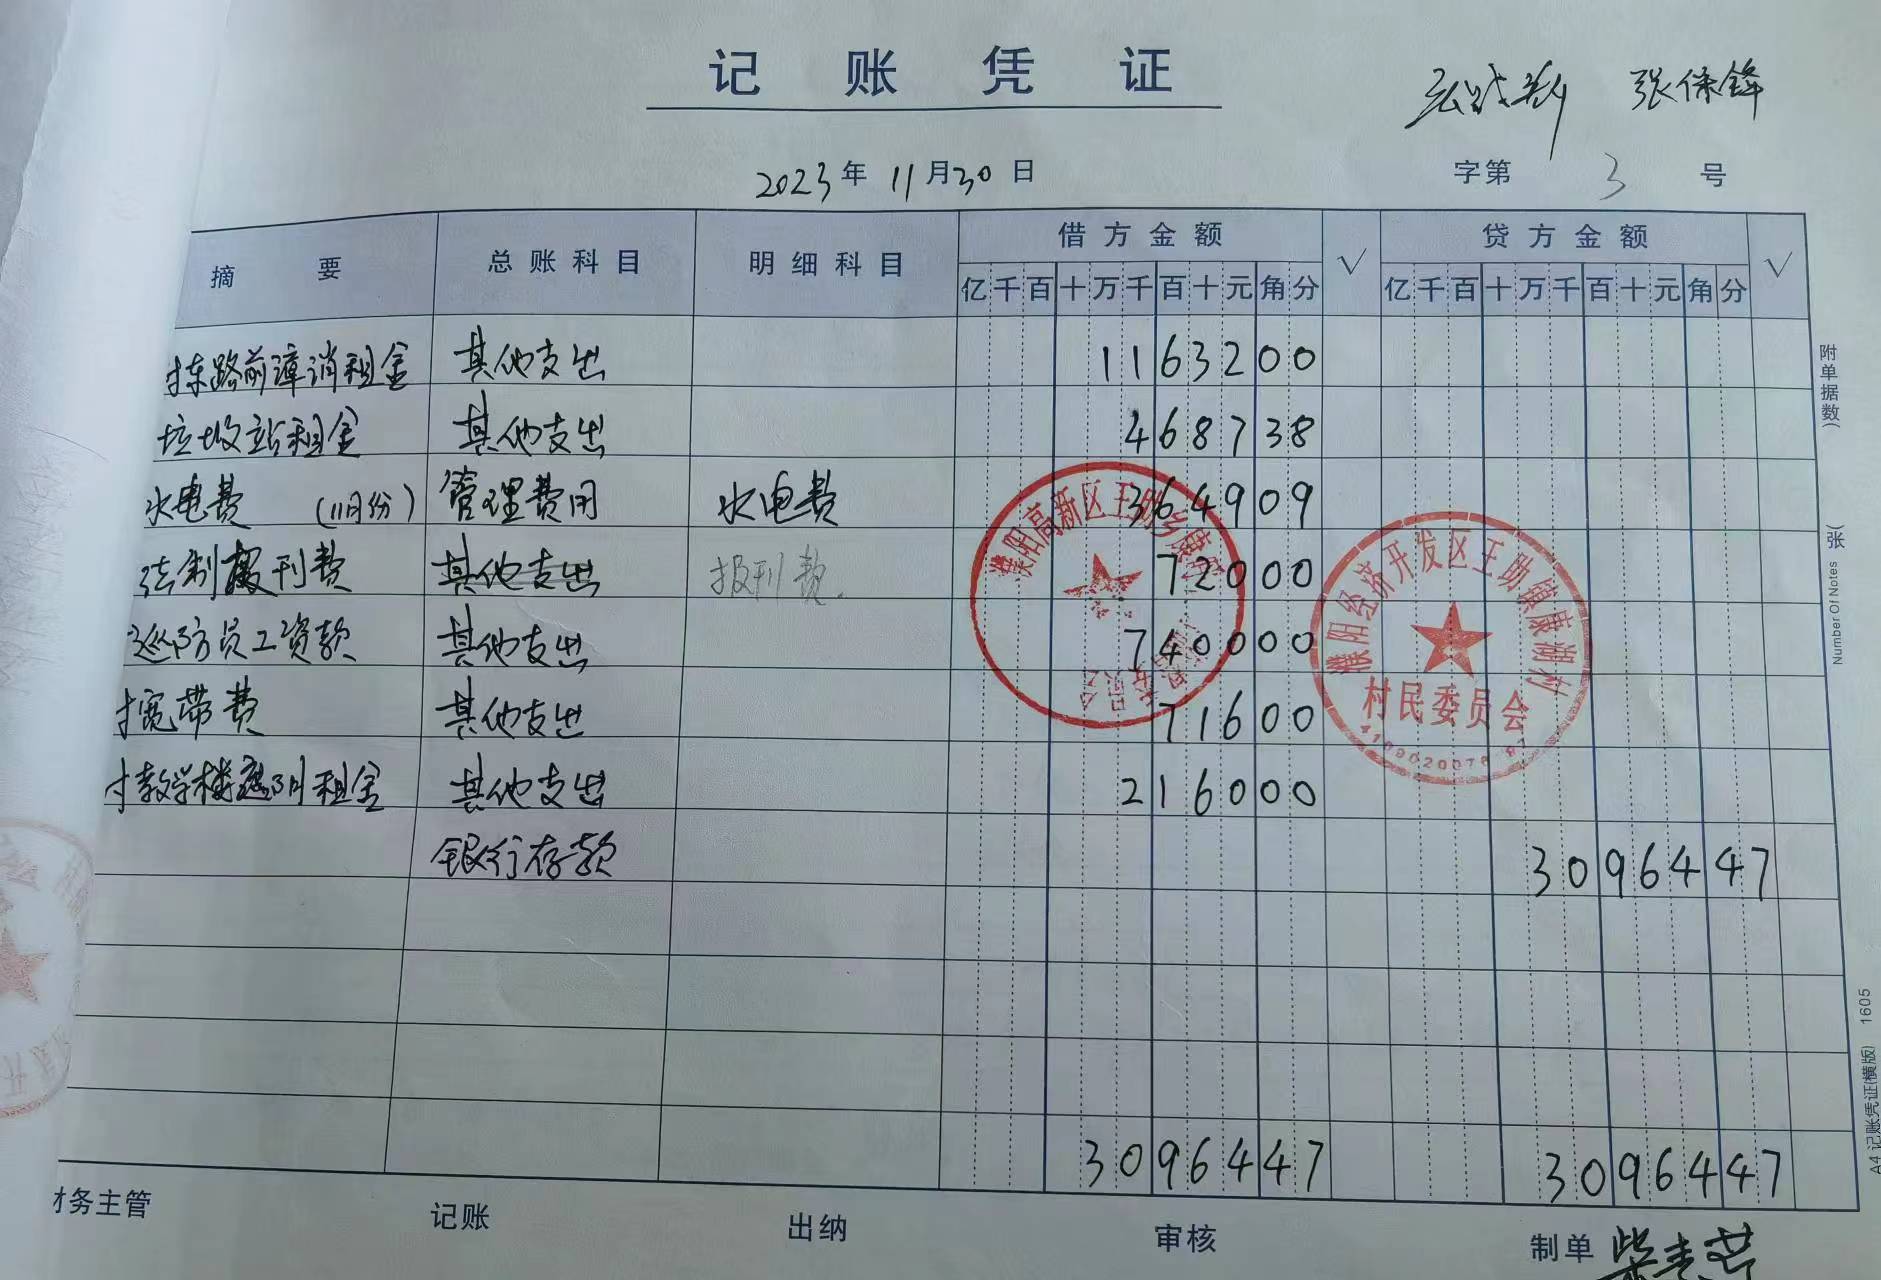 记 账 凭 证
张保锋
2023年 11月30日
字第 3 号
摘 要 总账科目 明细科目 借方金额 √ 贷方金额 √
亿千百十万千百十元角分 亿千百十万千百十元角分
付东路前漳消租金 其他支出 1163200
垃圾站租金 其他支出 468738
水电费 (11月份) 管理费用 水电费 364909
法制报刊费 其他支出 报刊费. 72000
巡防员工资款 其他支出 740000
付宽带费 其他支出 71600
付教学楼 月租金 其他支出 216000
银行存款 3096447
3096447 3096447
财务主管 记账 出纳 审核 制单
附单据数(
张)
Number Of Notes
A4 记账凭证(横版) 1605
濮阳高新区王助乡
濮阳经济开发区王助镇康湖村
村民委员会